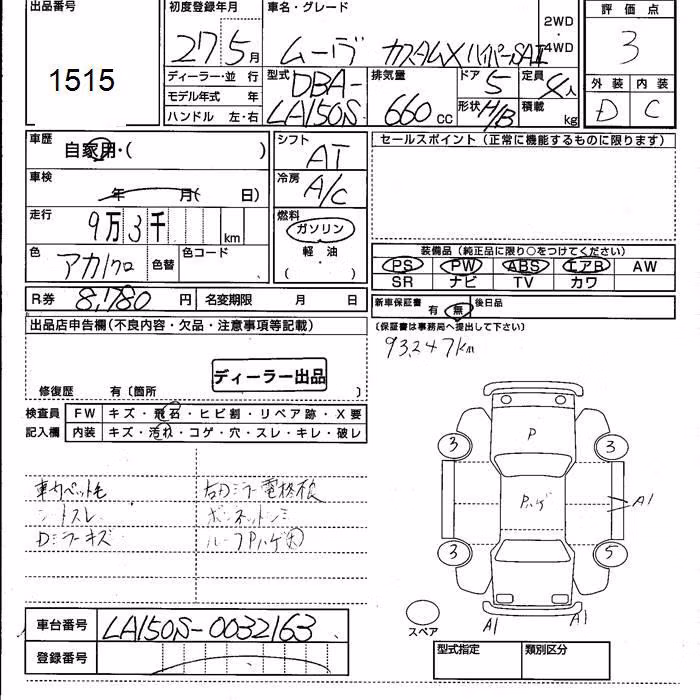 出品番号
1515
初度登録年月
27 5月
車名・グレード
ムーヴ カスタムX ハイパーSAⅡ
2WD
・
4WD
評価点
3
ディーラー・並行
モデル年式 年
ハンドル 左・右
型式 DBA-
LA150S
排気量
660 cc
ドア 5
形状 H/B
定員 4人
積載 kg
外装 内装
D C
車歴
自家用・( )
シフト
AT
セールスポイント (正常に機能するものに限ります)
車検
年 月( 日)
冷房
A/C
走行
9万3千 km
燃料
ガソリン
軽・油
( ・ )
色
アカ/クロ
色替
色コード
装備品(純正品に限り○をつけてください)
PS PW ABS エアB AW
SR ナビ TV カワ
R券 8,780 円 名変期限 月 日
新車保証書 有 無 後日品
(保証書は事務局へ提出して下さい)
93,247km
出品店申告欄(不良内容・欠品・注意事項等記載)
ディーラー出品
修復歴 有〔箇所 〕
検査員 FW キズ・飛石・ヒビ割・リペア跡・X要
記入欄 内装 キズ・汚れ・コゲ・穴・スレ・キレ・破レ
車内ペット毛
シートスレ
Dミラーキズ
ルーフPハゲ大
P
3
3
Pハゲ
A1
3
5
A1
A1
スペア
車台番号 LA150S-0032163
登録番号
型式指定 類別区分